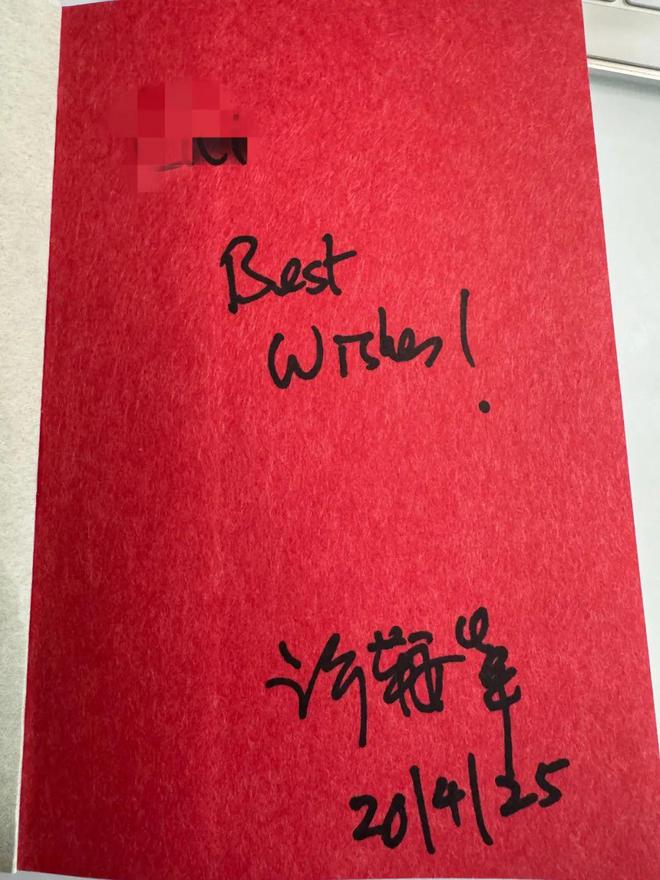 Best
Wishes!
许鞍華
20/4/25